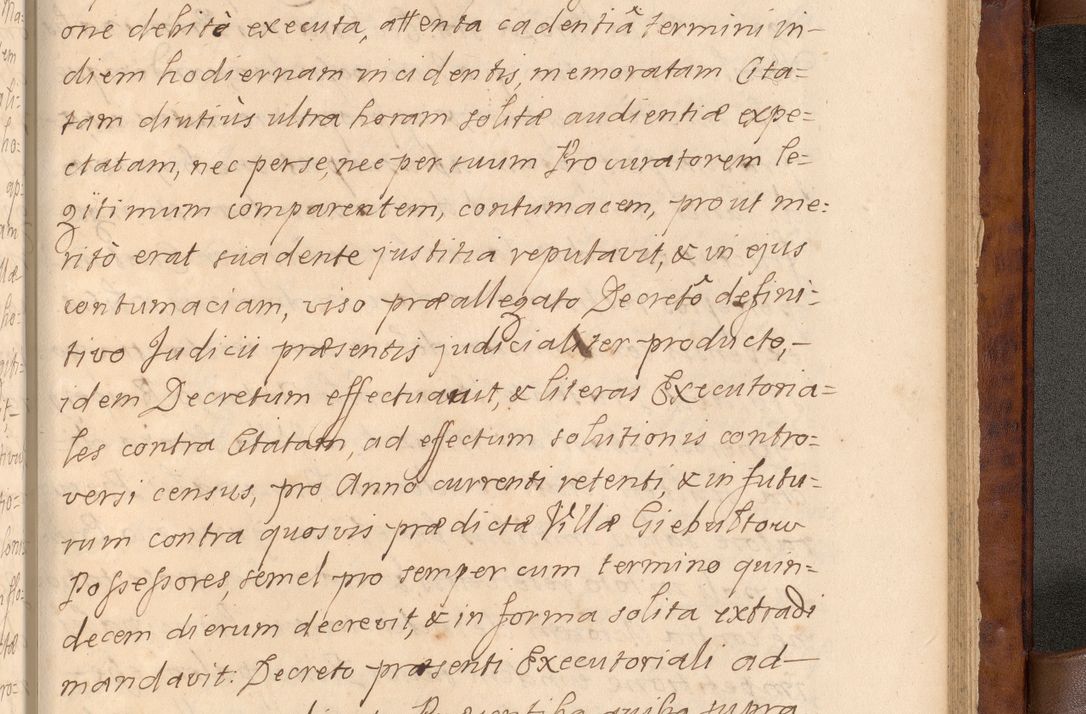 one debitè executa, attenta cadentiâ termini in-
diem hodiernam incidentis, memoratam Cita=
tam diutiùs ultra horam solitæ audientiæ expe=
ctatam, nec per se, nec per suum Procuratorem le=
gitimum comparentem, contumacem, prout me=
ritò erat suadente justitia reputavit, & in ejus
contumaciam, viso præallegato Decretô defini=
tivo Judicii præsentis judicialiter producto,-
idem Decretum effectuavit, & literas Executoria=
les contra Citatam, ad effectum solutionis contro=
versi census, pro Anno currenti retenti, & in futu=
rum contra quosvis prædictæ Villæ Giebultow
Possessores, semel pro semper cum termino quin=
decem dierum decrevit, & in forma solita extradi
mandavit. Decreto præsenti Executoriali ad-
quibq supra